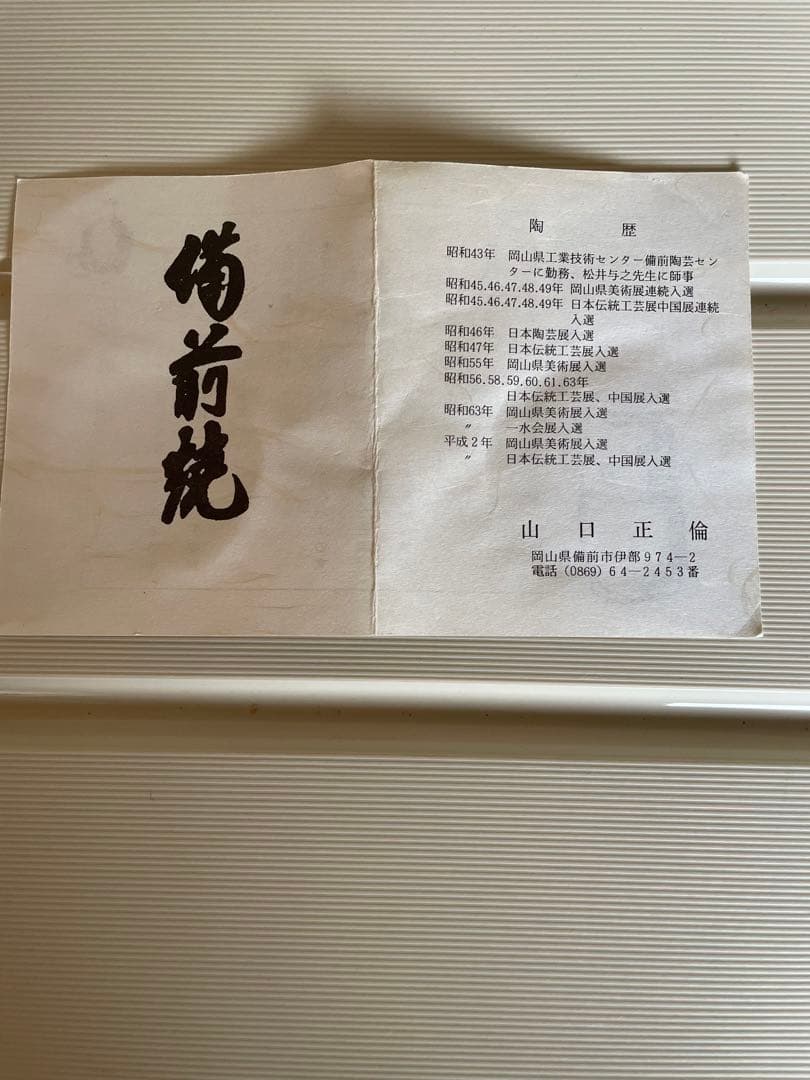 備前焼
陶歴
昭和43年 岡山県工業技術センター備前陶芸セン
ターに勤務、松井与之先生に師事
昭和45.46.47.48.49年 岡山県美術展連続入選
昭和45.46.47.48.49年 日本伝統工芸展中国展連続
入選
昭和46年 日本陶芸展入選
昭和47年 日本伝統工芸展入選
昭和55年 岡山県美術展入選
昭和56.58.59.60.61.63年
日本伝統工芸展、中国展入選
昭和63年 岡山県美術展入選
〃 一水会展入選
平成2年 岡山県美術展入選
〃 日本伝統工芸展、中国展入選
山口正倫
岡山県備前市伊部974―2
電話(0869)64―2453番